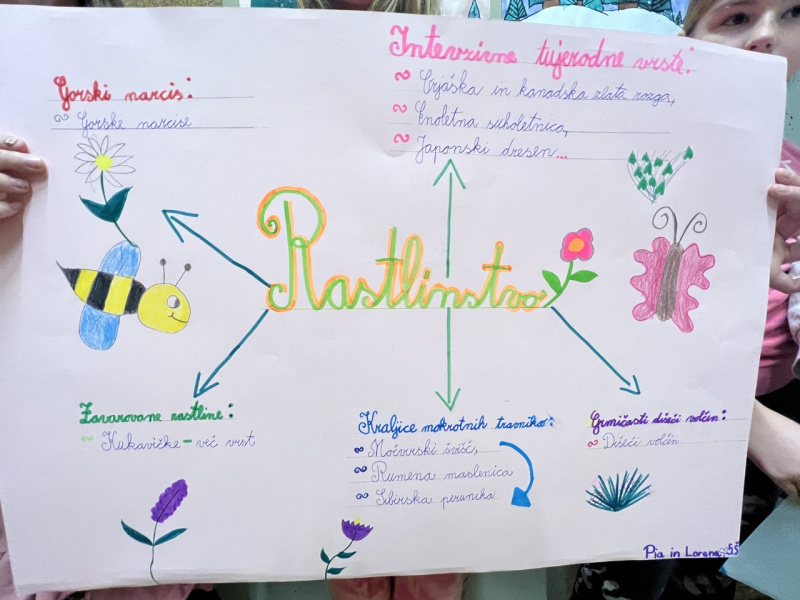 Intenzivne tujerodne vrste:
Orjaška in kanadska zlata rozga,
Enoletna suholetnica,
Japonski dresen...
Gorski narcis:
Gorske narcise
Rastlinstvo
Zavarovane rastline:
Kukavičke - več vrst
Kraljice mokrotnih travnikov:
Močvirski svišč,
Rumena maslenica
Sibirska perunika
Grmičasti dišeči volčin:
Dišeči volčin
Pia in Lorena